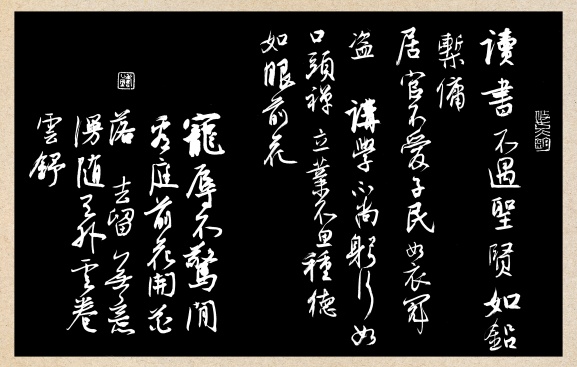 讀書不遇聖賢如鉛
槧傭
居官不愛子民如衣冠
盜 講學不尚躬行如
口頭禪 立業不思種德
如眼前花
寵辱不驚閒
看庭前花開花
落 去留無意
漫隨天外雲卷
雲舒